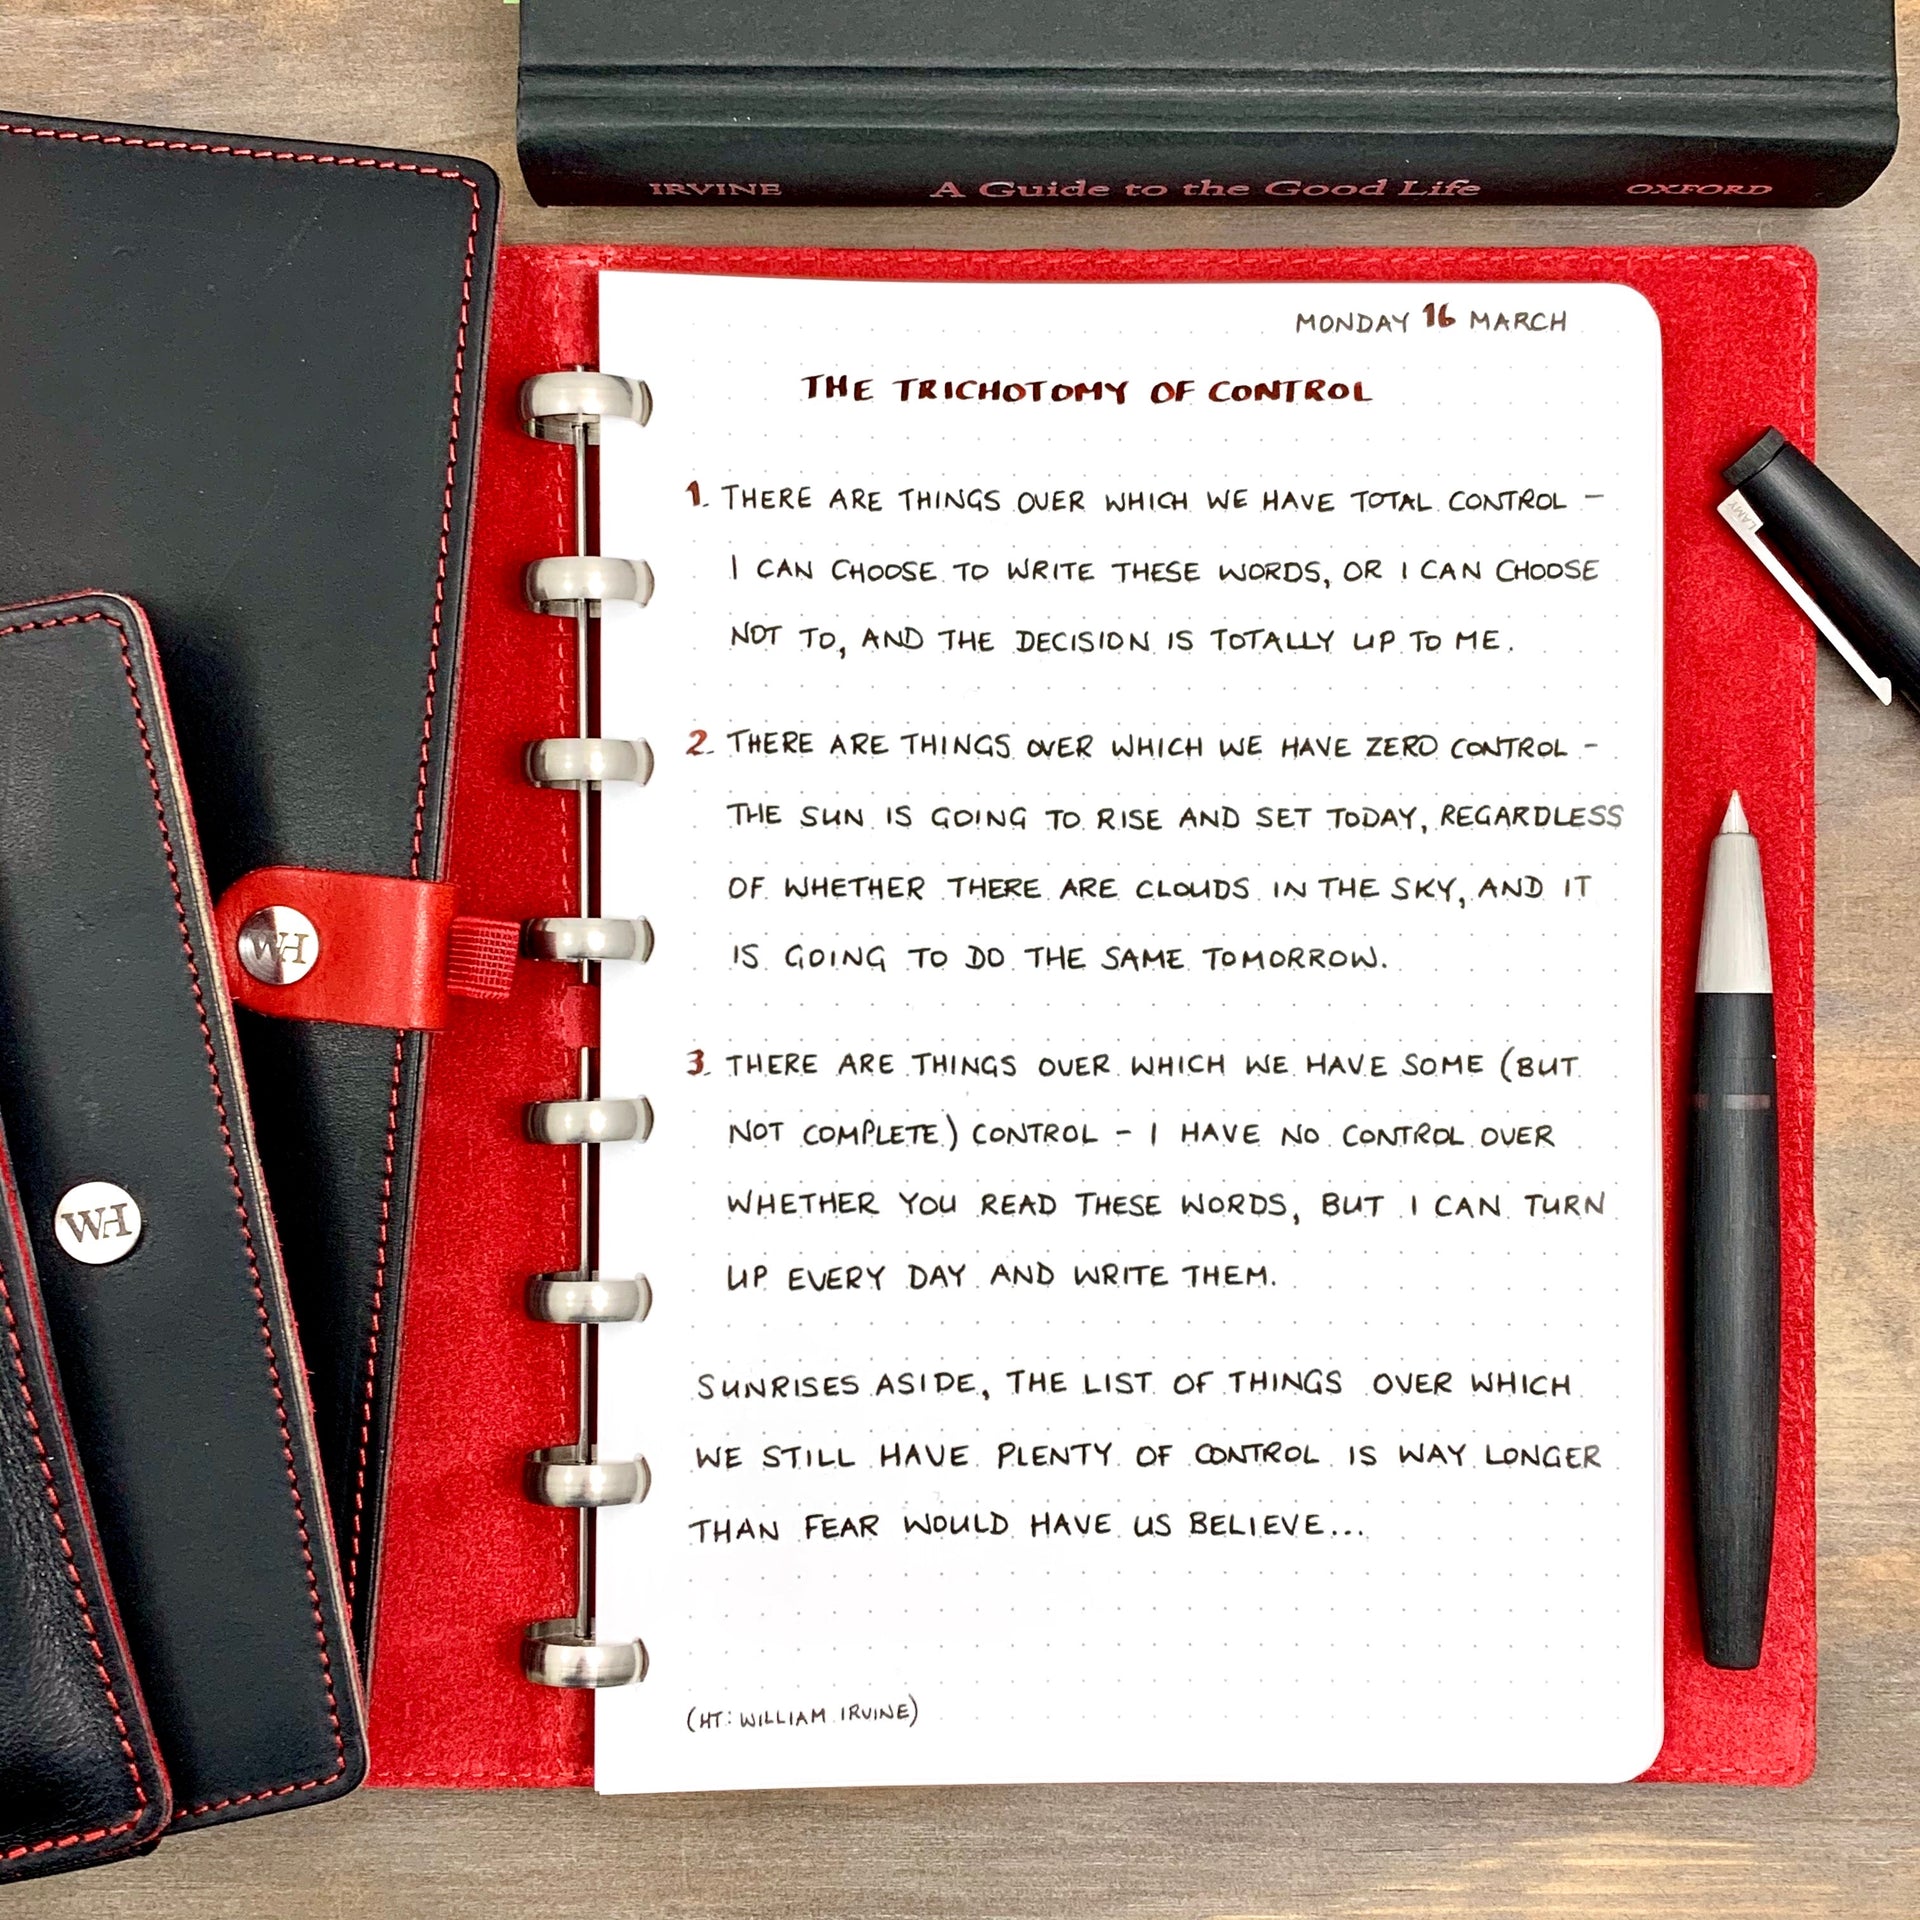 IRVINE A Guide to the Good Life OXFORD
MONDAY 16 MARCH
THE TRICHOTOMY OF CONTROL
1. THERE ARE THINGS OVER WHICH WE HAVE TOTAL CONTROL –
I CAN CHOOSE TO WRITE THESE WORDS, OR I CAN CHOOSE
NOT TO, AND THE DECISION IS TOTALLY UP TO ME.
2. THERE ARE THINGS OVER WHICH WE HAVE ZERO CONTROL –
THE SUN IS GOING TO RISE AND SET TODAY, REGARDLESS
OF WHETHER THERE ARE CLOUDS IN THE SKY, AND IT
IS GOING TO DO THE SAME TOMORROW.
3. THERE ARE THINGS OVER WHICH WE HAVE SOME (BUT
NOT COMPLETE) CONTROL – I HAVE NO CONTROL OVER
WHETHER YOU READ THESE WORDS, BUT I CAN TURN
UP EVERY DAY AND WRITE THEM.
SUNRISES ASIDE, THE LIST OF THINGS OVER WHICH
WE STILL HAVE PLENTY OF CONTROL IS WAY LONGER
THAN FEAR WOULD HAVE US BELIEVE...
(HT: WILLIAM IRVINE)
WH
WH
LAMY